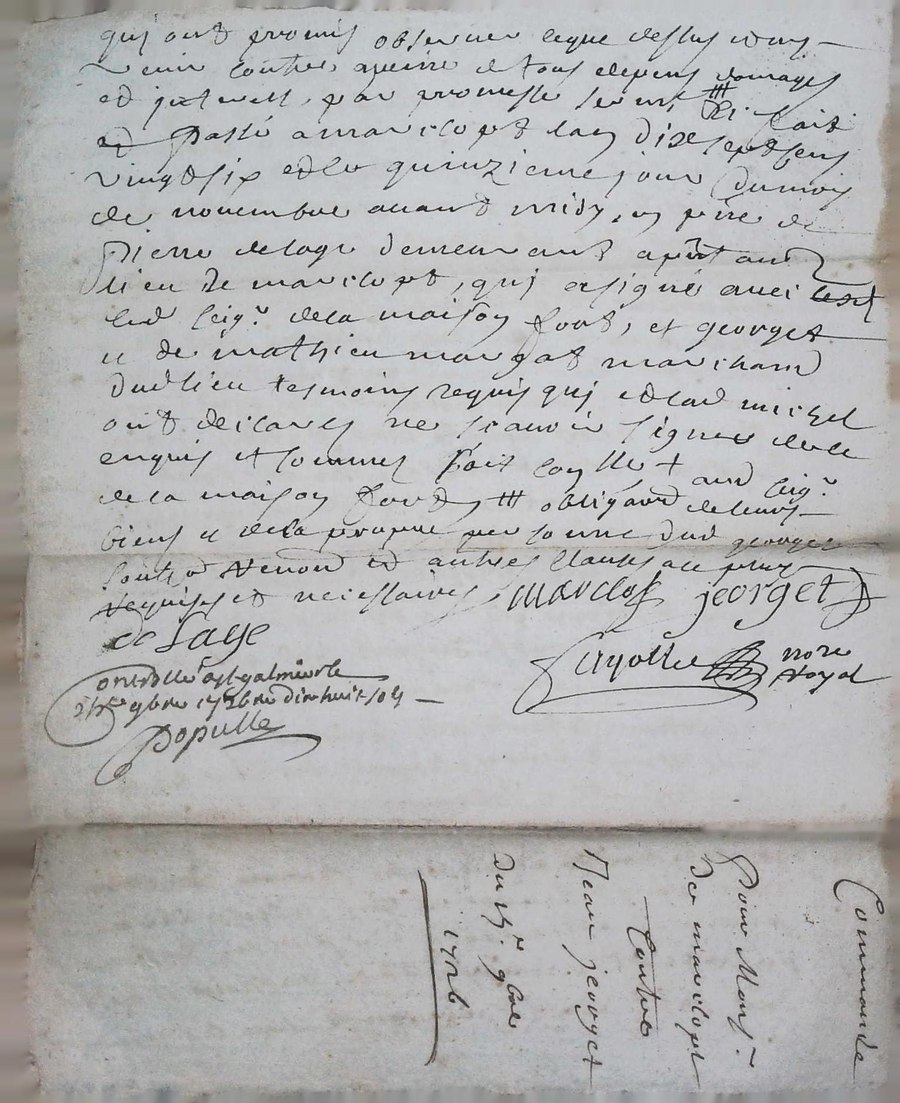 qui ont promis observer ceque dessus et ny
venir contre a peine de tous depens domages
et interest, par promesse serment ttt fait
et passé a marclopt lan dixe sept cens
vingt six et le quinzieme jour du mois
de novembre avant midy, en pnce de
Pierre delage demeurant audt
lieu de marclopt, qui a signé avec
led seigr. dela maison fort, et georget
et de mathieu marchand
dud lieu tesmoins requis qui et lad michel
ont declarés ne scavoir signer de ce
enquis et sommes fait + aud seigr.
de la maison fort ttt obligeant de leurs
biens et dela propre personne dud georget
et autres clauses
requises et necessaires marclopt georget
de Lage
notre
Royal
Controllé a St galmier le
9bre 1726 dix huit sols
Populle
Commande
Pour Monsr.
De marclopt
Contre
Jean jeorget
Du 15e. 9bre
1726